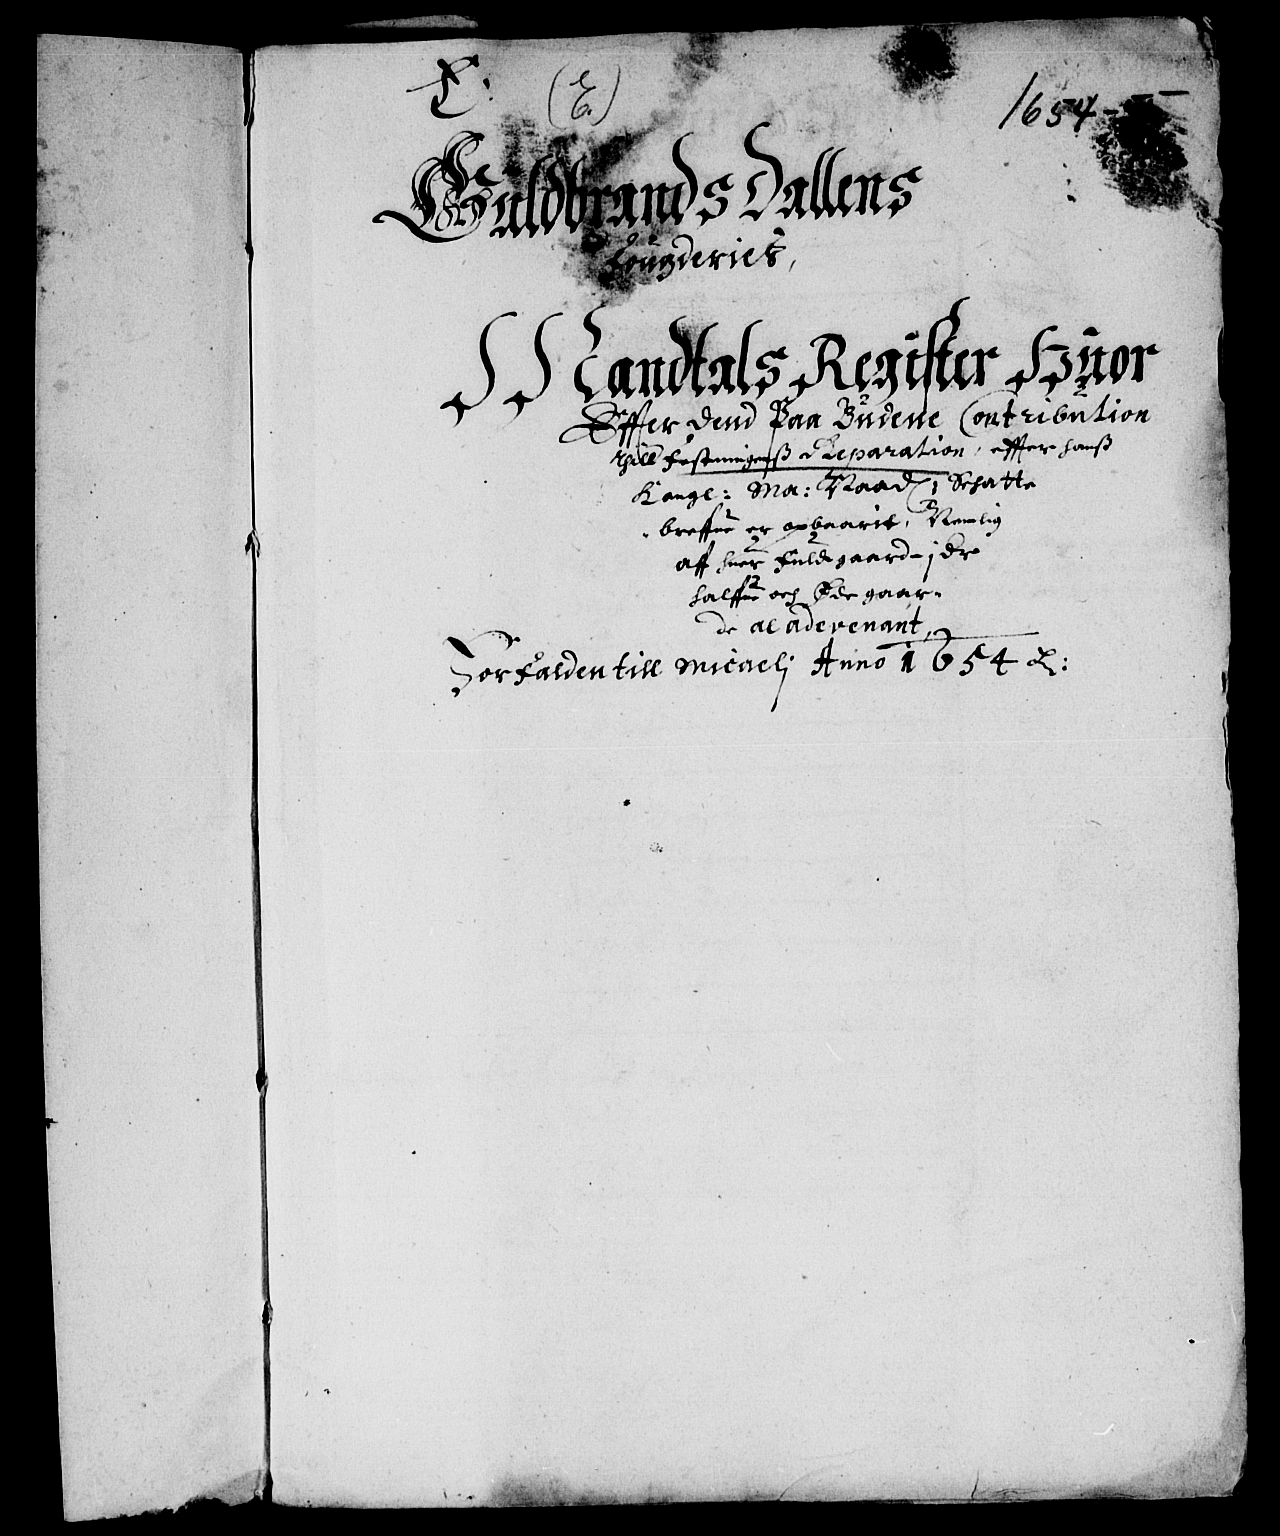 E: (E.) 1654
Guldbrands Dallens
Fougderies,
Mandtals Register Huor
Effer dend Paa Budene Contribution
thill Festningenß Reparation, effter hanß
Kongl: Ma: Naad: Schatte
breffue er opbaarit, Nemlig
aff huer fulde gaard - 1 dr
halffue och Øde gaar-
de al advenant,
Forfalden till Micaelj Anno 1654